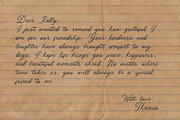 Dear Kelly,
I just wanted to remind you how grateful I
am for our friendship. Your kindness and
laughter have always brought comfort to my
days. I hope life brings you peace, happiness,
and beautiful moments ahead. No matter where
time takes us, you will always be a special
friend to me.
With love